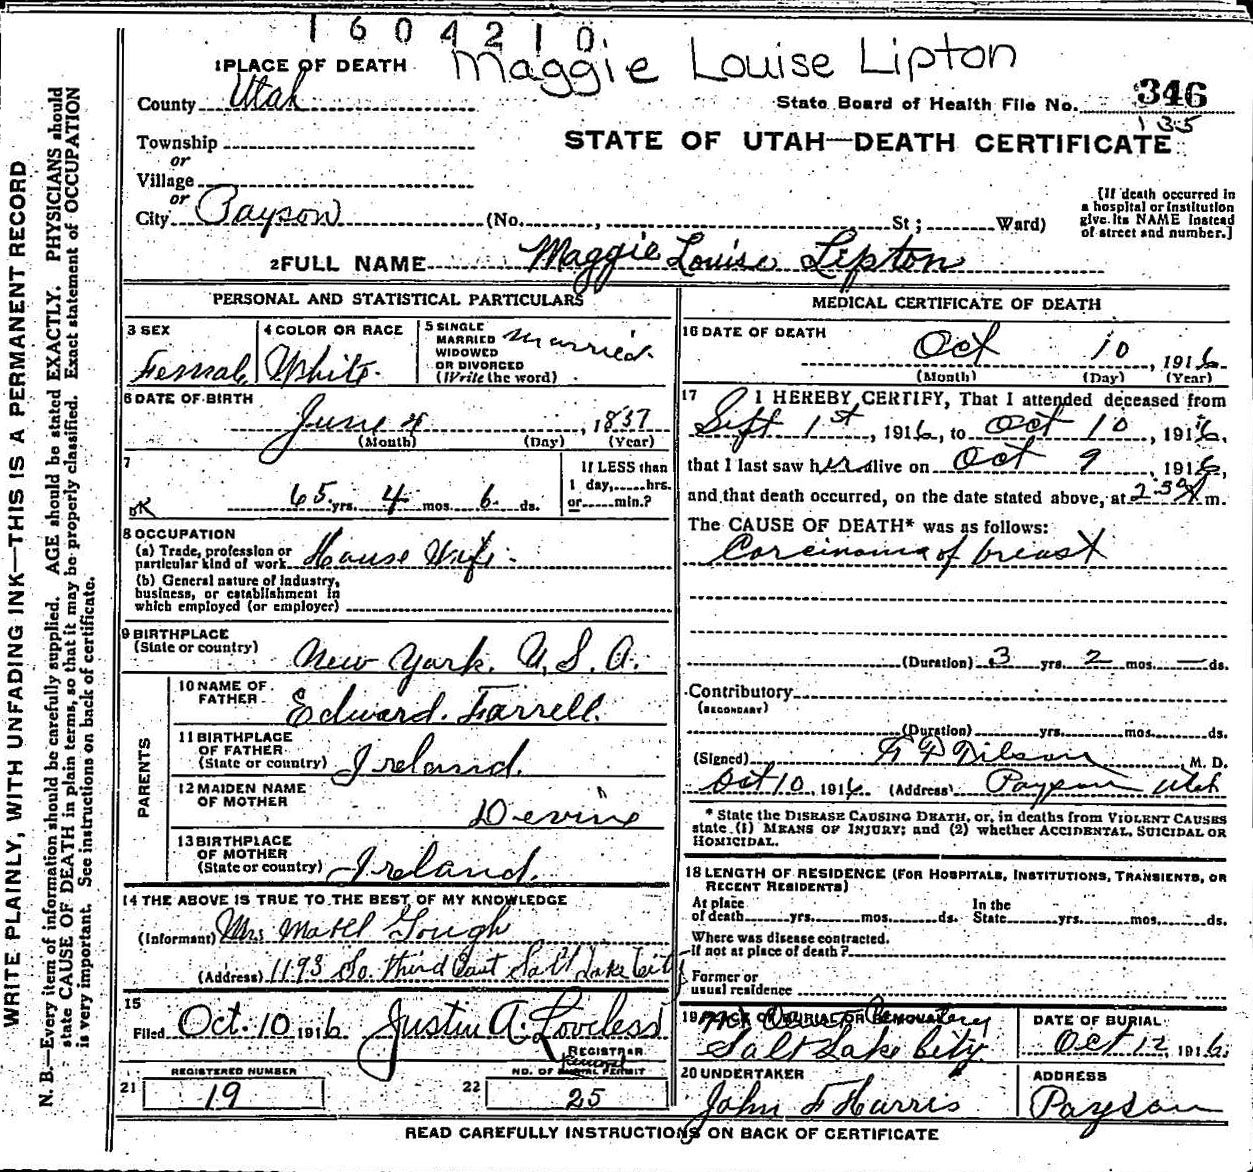 1604210.
Maggie Louise Lipton
1 PLACE OF DEATH
County Utah
State Board of Health File No. 346
135
Township
or
Village
or
City Payson (No. , St; Ward)
STATE OF UTAH—DEATH CERTIFICATE
[If death occurred in
a hospital or institution
give its NAME instead
of street and number.]
2 FULL NAME Maggie Louise Lipton
PERSONAL AND STATISTICAL PARTICULARS
3 SEX
Female
4 COLOR OR RACE
White
5 SINGLE
MARRIED
WIDOWED
OR DIVORCED
(Write the word)
Married
6 DATE OF BIRTH
June 4, 1837
(Month) (Day) (Year)
7
65 yrs. 4 mos. 6 ds.
If LESS than
1 day, hrs.
or min.?
8 OCCUPATION
(a) Trade, profession or
particular kind of work House Wife.
(b) General nature of industry,
business, or establishment in
which employed (or employer)
9 BIRTHPLACE
(State or country) New York. U.S.A.
PARENTS
10 NAME OF
FATHER Edward. Farrell.
11 BIRTHPLACE
OF FATHER
(State or country) Ireland.
12 MAIDEN NAME
OF MOTHER Devine
13 BIRTHPLACE
OF MOTHER
(State or country) Ireland.
14 THE ABOVE IS TRUE TO THE BEST OF MY KNOWLEDGE
(Informant) Mrs Mabel Gough
(Address) 1193 So. third East Salt Lake City
15
Filed Oct. 10 1916 Justin A. Loveless
REGISTRAR
21 REGISTERED NUMBER
19
22 NO. OF PERMIT
25
MEDICAL CERTIFICATE OF DEATH
16 DATE OF DEATH
Oct 10, 1916
(Month) (Day) (Year)
17 I HEREBY CERTIFY, That I attended deceased from
Sept 1st, 1916, to Oct 10, 1916,
that I last saw her alive on Oct 9, 1916,
and that death occurred, on the date stated above, at 2 30 A m.
The CAUSE OF DEATH* was as follows:
Carcinoma of breast
(Duration) 3 yrs. 2 mos. — ds.
Contributory
(SECONDARY)
(Duration) yrs. mos. ds.
(Signed) M. D.
Oct 10, 1916 (Address) Payson Utah
* State the DISEASE CAUSING DEATH, or, in deaths from VIOLENT CAUSES
state (1) MEANS OF INJURY; and (2) whether ACCIDENTAL, SUICIDAL OR
HOMICIDAL.
18 LENGTH OF RESIDENCE (FOR HOSPITALS, INSTITUTIONS, TRANSIENTS, OR
RECENT RESIDENTS)
At place
of death yrs. mos. ds.
In the
State yrs. mos. ds.
Where was disease contracted.
If not at place of death?
Former or
usual residence
19 PLACE OF BURIAL OR REMOVAL
Salt Lake City
DATE OF BURIAL
Oct 12, 1916.
20 UNDERTAKER
John F Harris
ADDRESS
Payson
READ CAREFULLY INSTRUCTIONS ON BACK OF CERTIFICATE
WRITE PLAINLY, WITH UNFADING INK—THIS IS A PERMANENT RECORD
N. B.—Every item of information should be carefully supplied. AGE should be stated EXACTLY. PHYSICIANS should
state CAUSE OF DEATH in plain terms, so that it may be properly classified. Exact statement of OCCUPATION
is very important. See instructions on back of certificate.